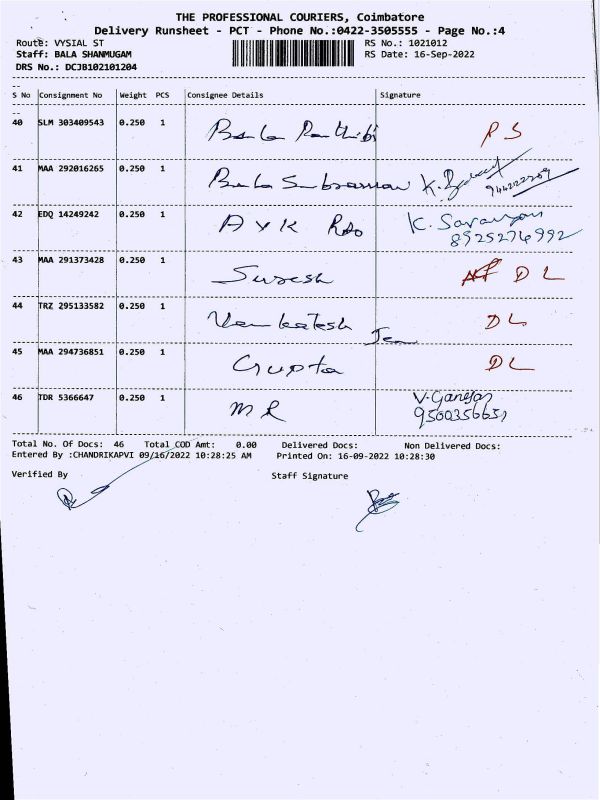 THE PROFESSIONAL COURIERS, Coimbatore
Delivery Runsheet - PCT - Phone No.:0422-3505555 - Page No.:4
Route: VYSIAL ST RS No.: 1021012
Staff: BALA SHANMUGAM RS Date: 16-Sep-2022
DRS No.: DCJB102101204
S No Consignment No Weight PCS Consignee Details Signature
40 SLM 303409543 0.250 1 Bala RS
41 MAA 292016265 0.250 1 Bala K.
42 EDQ 14249242 0.250 1 A V K K. Saravanan
8925274992
43 MAA 291373428 0.250 1 Suresh DL
44 TRZ 295133582 0.250 1 Venkatesh DL
45 MAA 294736851 0.250 1 Gupta DL
46 TDR 5366647 0.250 1 M R V. Ganesan
Total No. Of Docs: 46 Total COD Amt: 0.00 Delivered Docs: Non Delivered Docs:
Entered By :CHANDRIKAPVI 09/16/2022 10:28:25 AM Printed On: 16-09-2022 10:28:30
Verified By Staff Signature